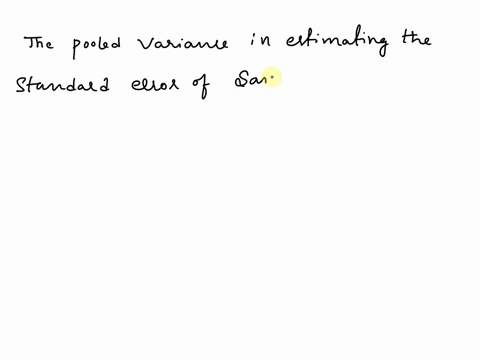 The pooled variance in estimating the
Standard error of Sam